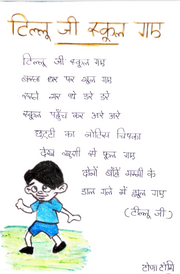 टिल्लू जी स्कूल गए
टिल्लू जी स्कूल गए
बस्ता घर पर भूल गए
रस्ते भर थे डरे डरे
स्कूल पहुँच कर अरे अरे
छुट्टी का नोटिस चिपका
देख खुशी से फूल गए
दोनों बाँहें मम्मी के
डाल गले में झूल गए
(टिल्लू जी)